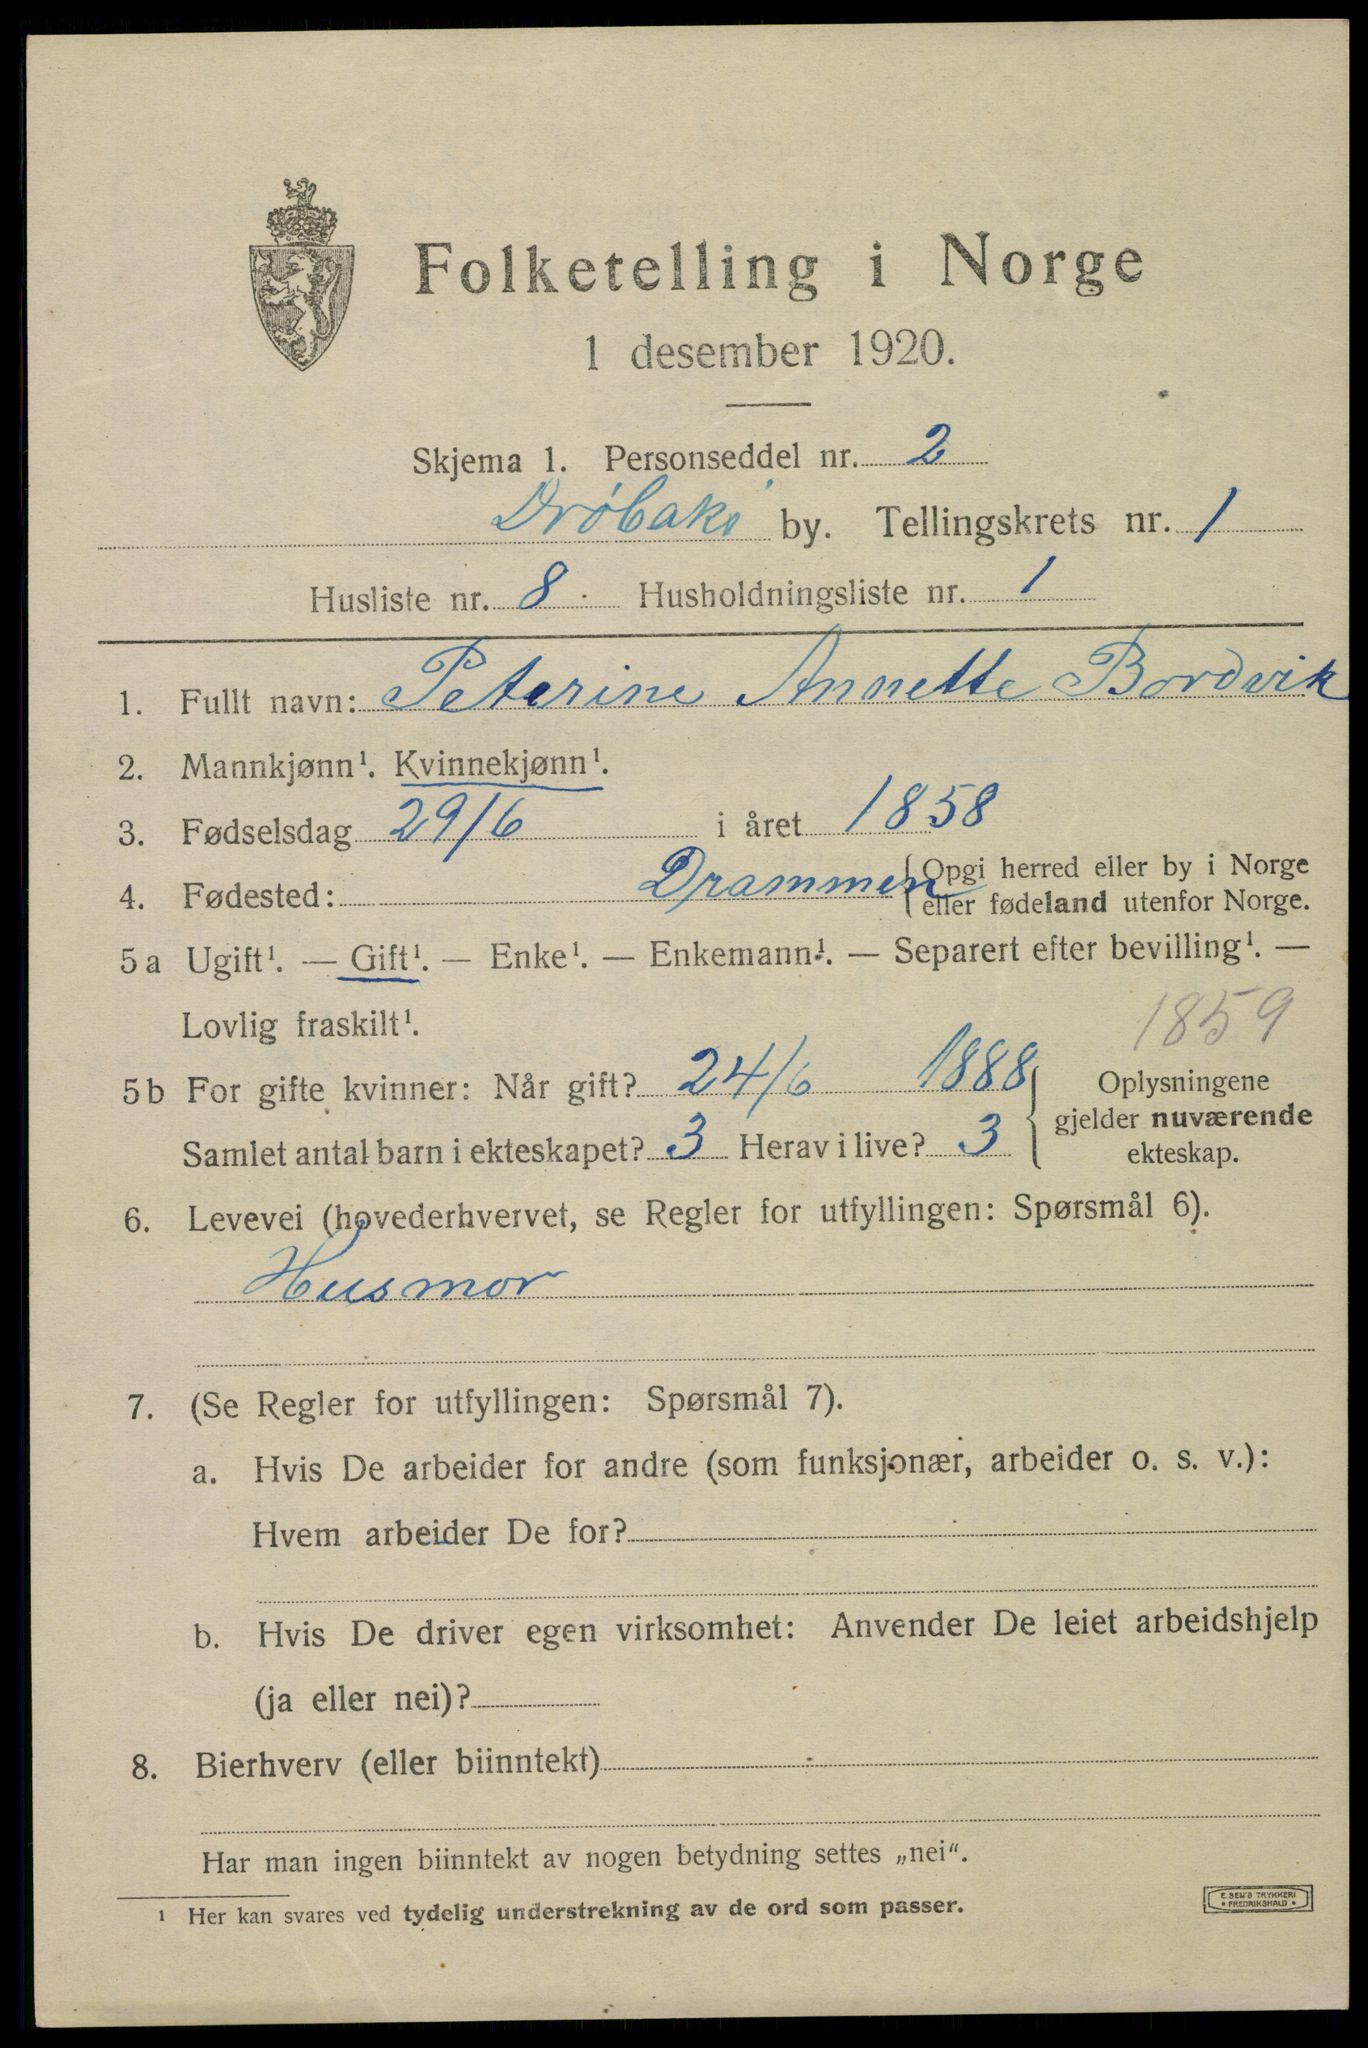 Folketelling i Norge
1 desember 1920.
Skjema 1. Personseddel nr. 2
Drøbak by. Tellingskrets nr. 1
Husliste nr. 8 Husholdningsliste nr. 1
1. Fullt navn: Peterine Annette Bordvik
2. Mannkjønn¹. Kvinnekjønn¹.
3. Fødselsdag 29/6 i året 1858
4. Fødested: Drammen {Opgi herred eller by i Norge
eller fødeland utenfor Norge.
5a Ugift¹. — Gift¹. — Enke¹. — Enkemann¹. — Separert efter bevilling¹. —
Lovlig fraskilt¹.
1859
5b For gifte kvinner: Når gift? 24/6 1888
Samlet antal barn i ekteskapet? 3 Herav i live? 3
Oplysningene
gjelder nuværende
ekteskap.
6. Levevei (hovederhvervet, se Regler for utfyllingen: Spørsmål 6).
Husmor
7. (Se Regler for utfyllingen: Spørsmål 7).
a. Hvis De arbeider for andre (som funksjonær, arbeider o. s. v.):
Hvem arbeider De for?
b. Hvis De driver egen virksomhet: Anvender De leiet arbeidshjelp
(ja eller nei)?
8. Bierhverv (eller biinntekt)
Har man ingen biinntekt av nogen betydning settes „nei“.
¹ Her kan svares ved tydelig understrekning av de ord som passer.
E. SEM'S TRYKKERI
• FREDRIKSHALD •